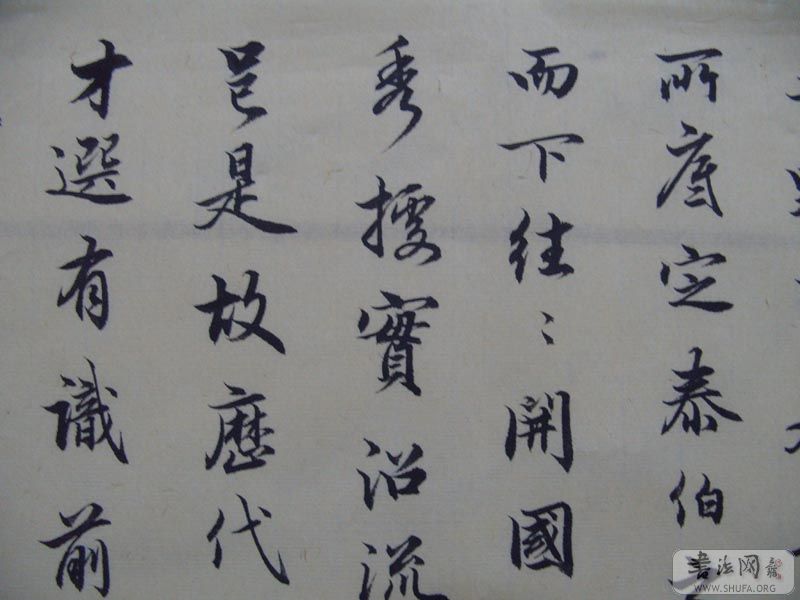 所底定泰伯
而下往〻開國
秀據實沿流
邑是故歷代
才選有識前
書法网
WWW.SHUFA.ORG